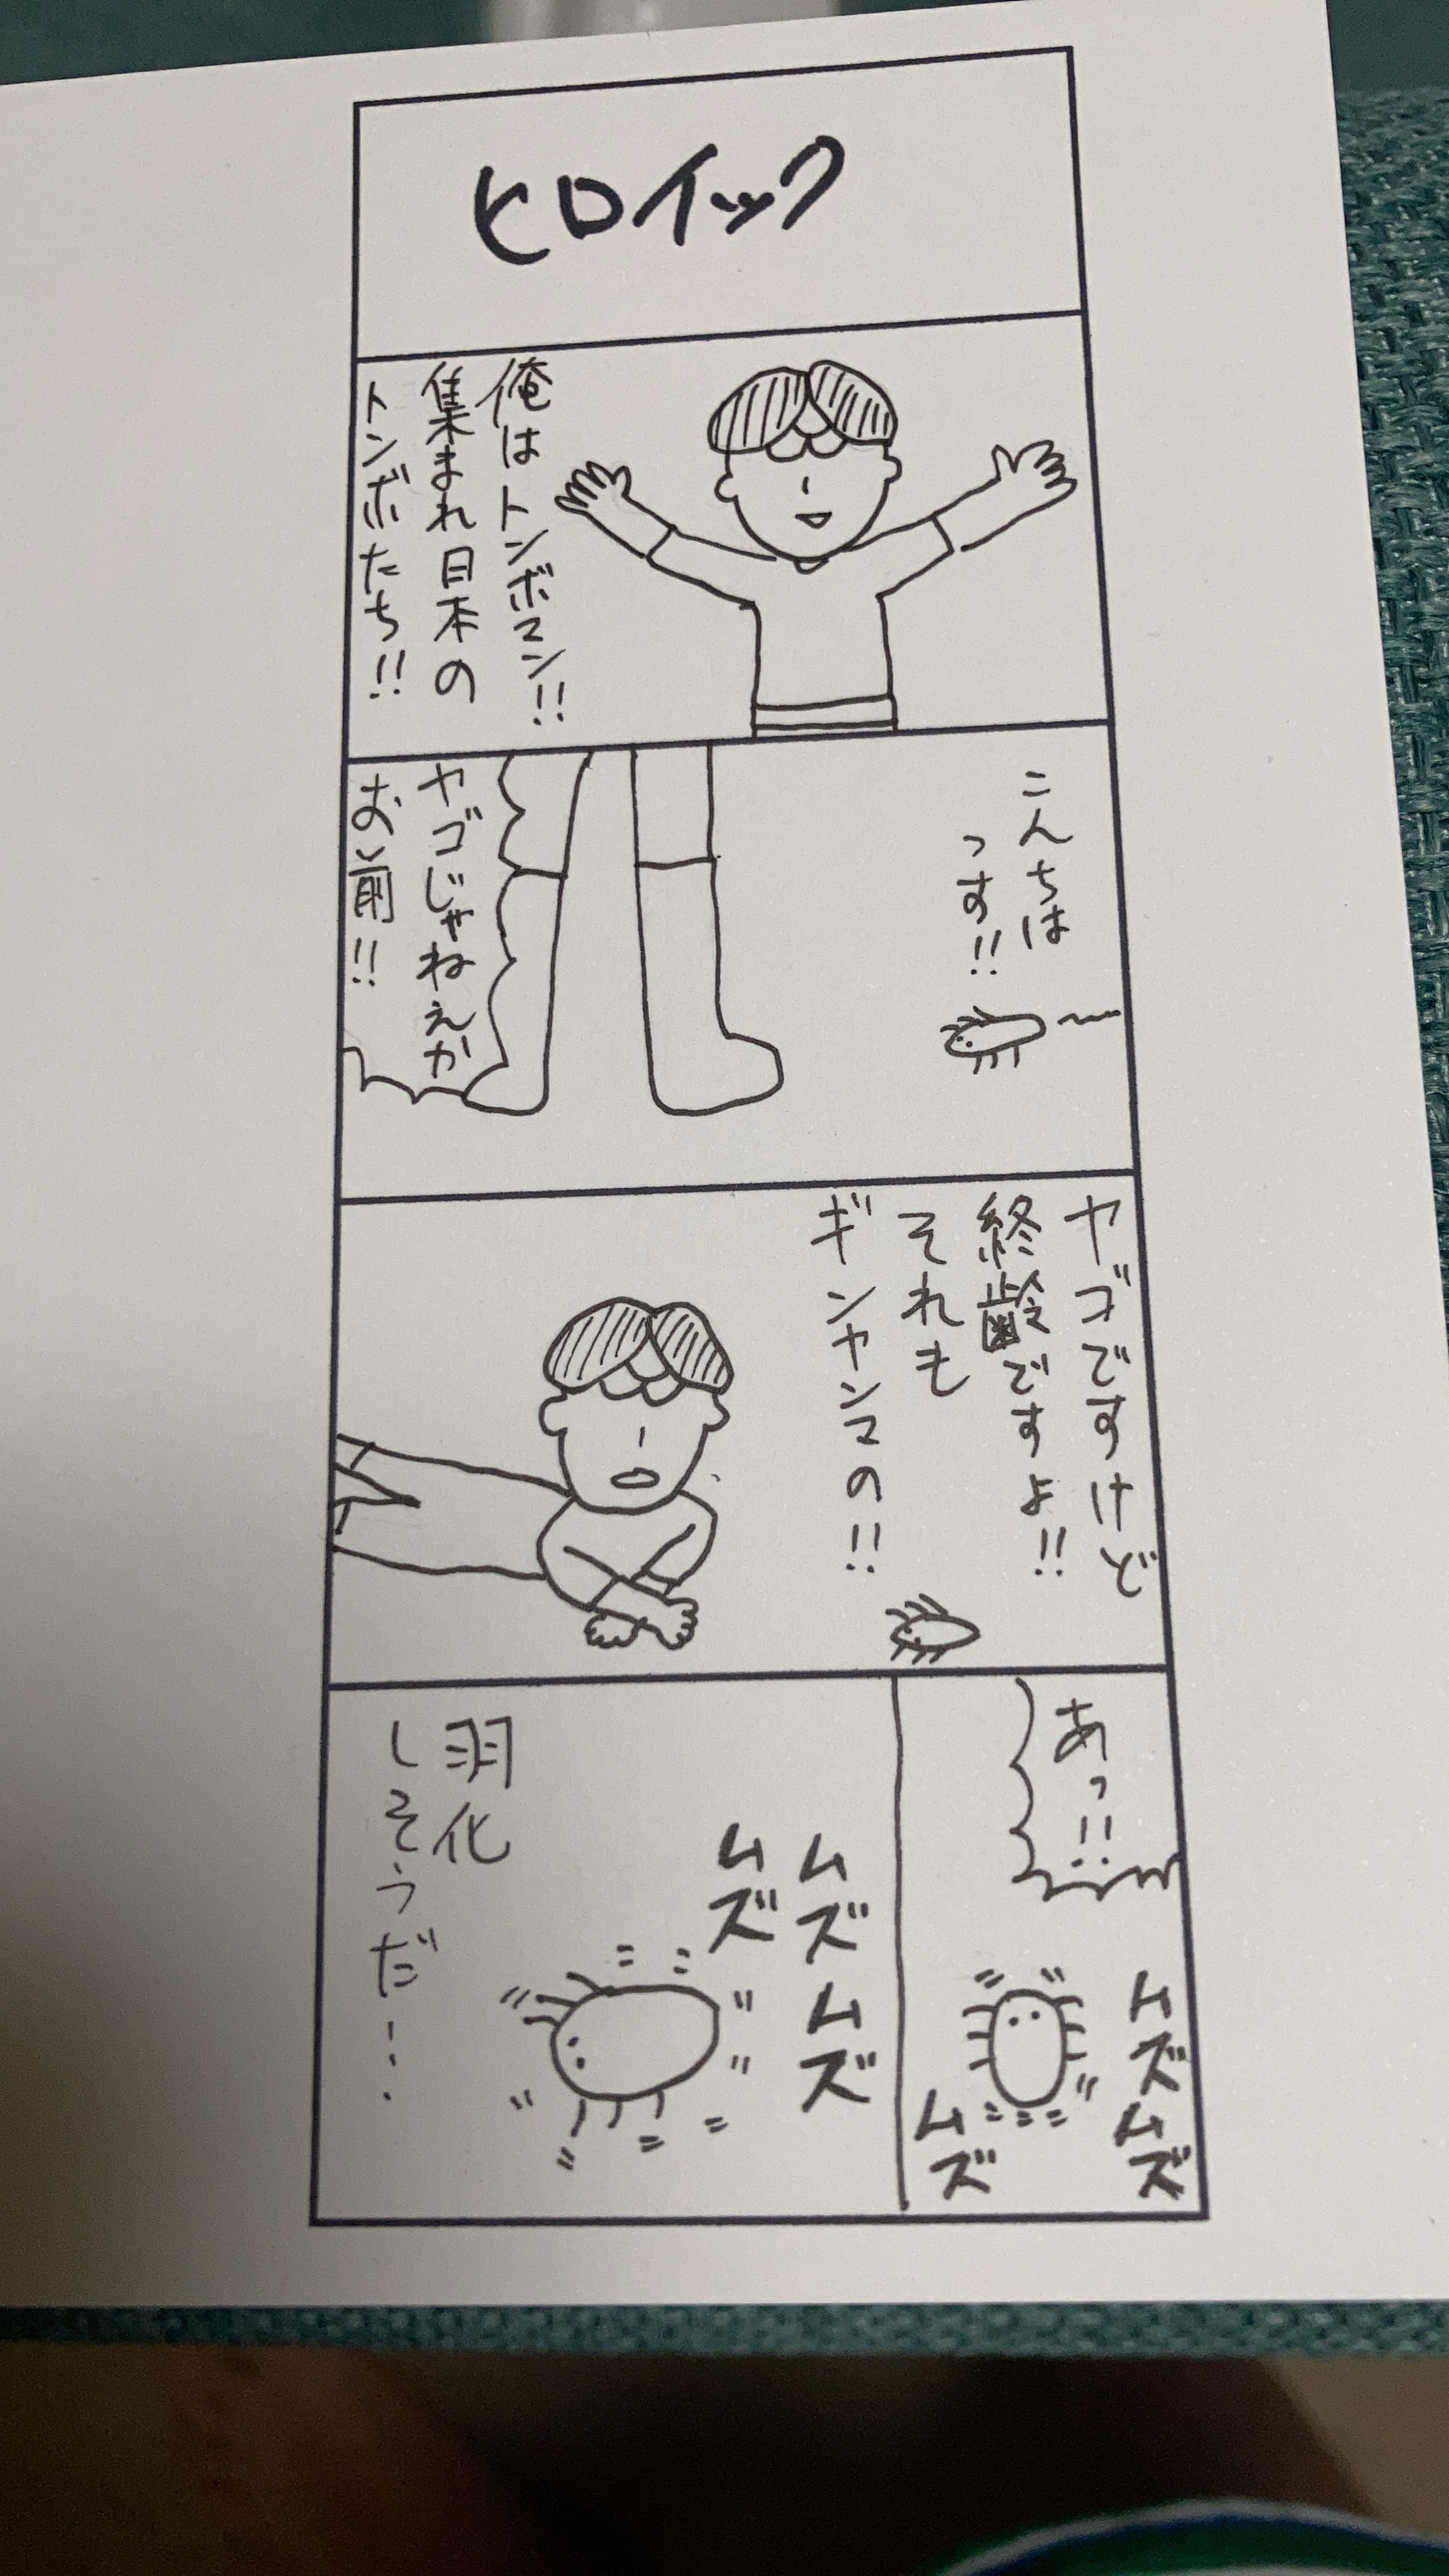 ヒロイック
俺はトンボマン!!
集まれ日本の
トンボたち!!
こんちは
っす!!
ヤゴじゃねぇか
お前!!
ヤゴですけど
終齢ですよ!!
それも
ギンヤンマの!!
あっ!!
ムズムズ
ムズ
ムズムズ
ムズ
羽化
しそうだ…